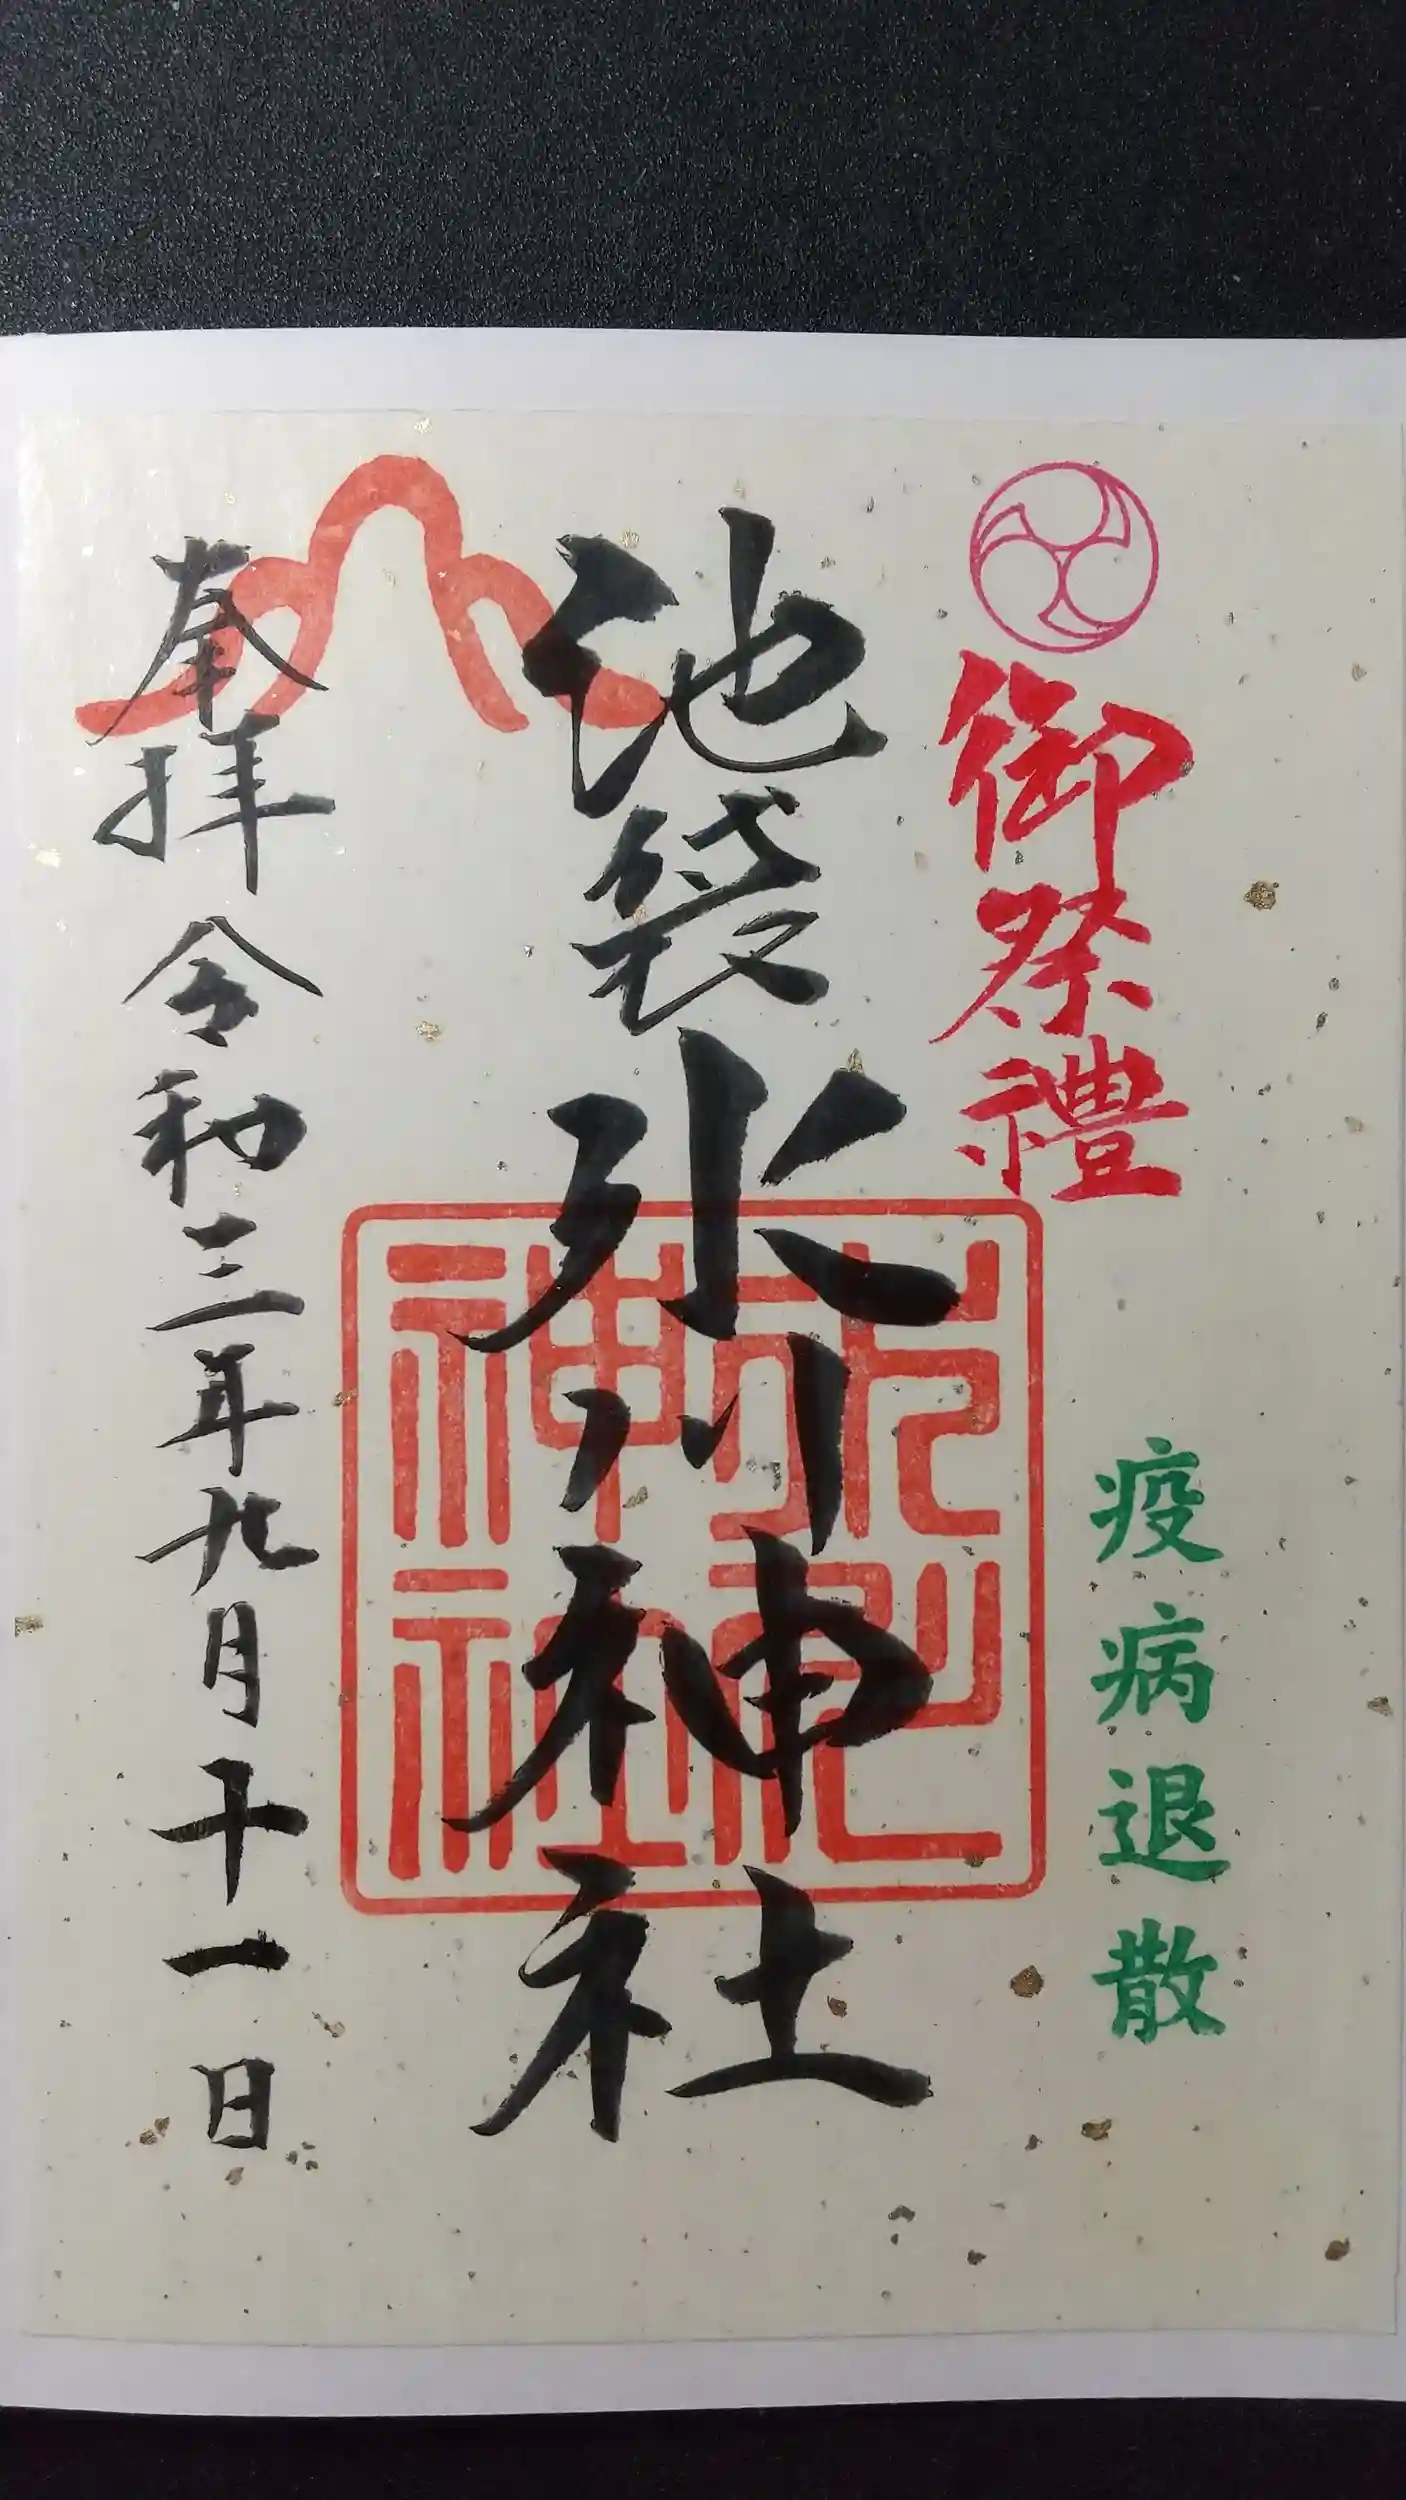 御祭禮
疫病退散
池袋氷川神社
奉拝 令和三年九月十一日